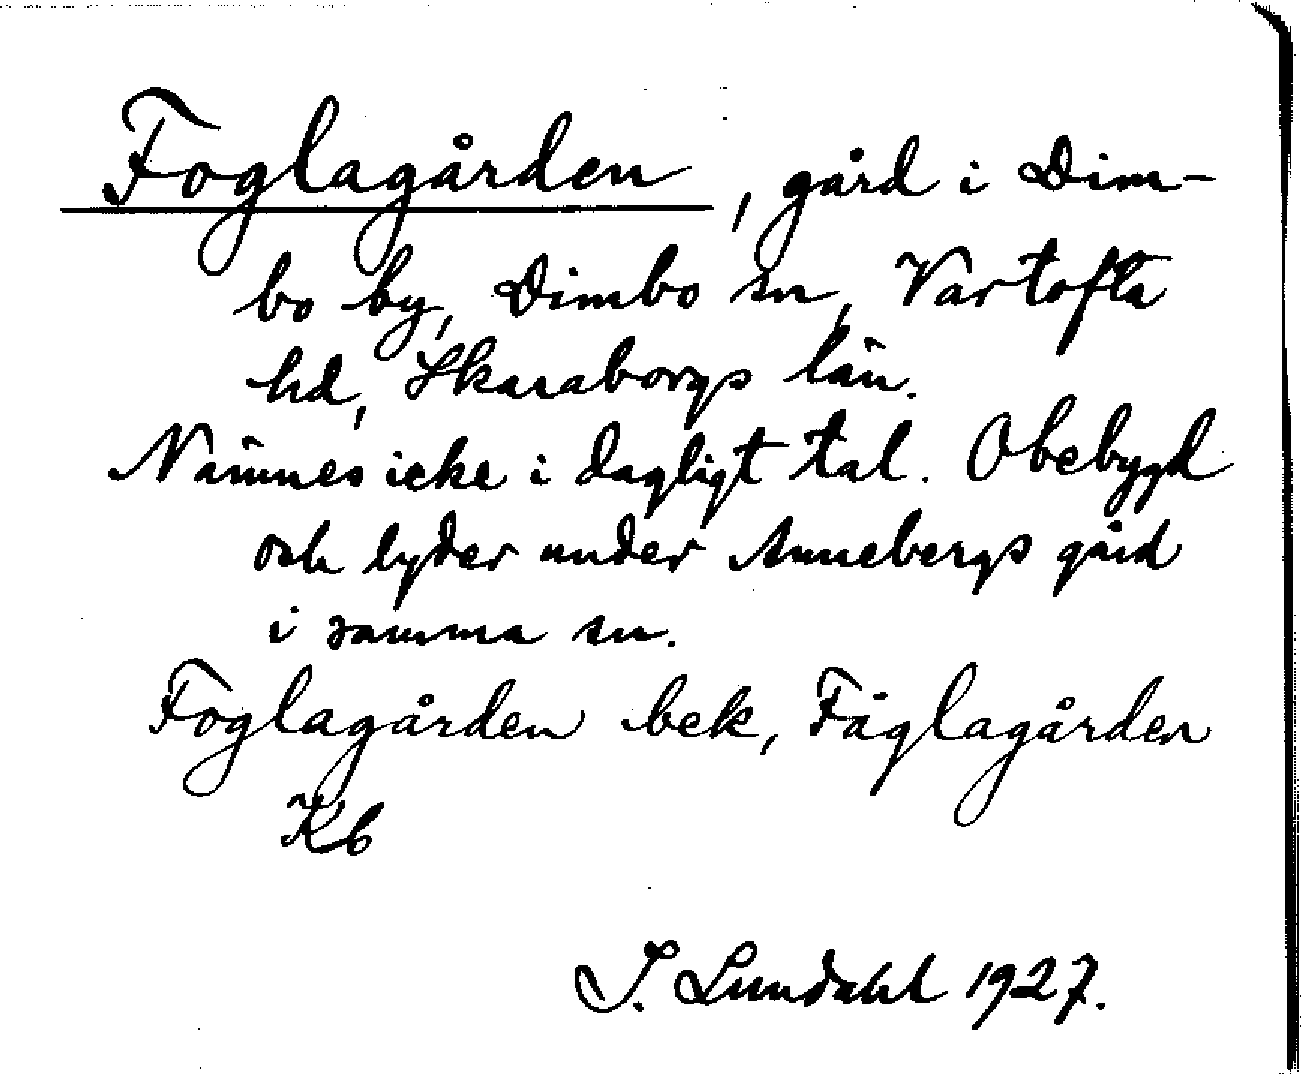 Foglagården, gård i Dim-
bo by, Dimbo sn, Vartofta
hd, Skaraborgs län.
Nämnes icke i dagligt tal. Obebygd
och lyder under Annebergs gård
i samma sn.
Foglagården bek, Fåglagården
Kb
I. Lundahl 1927.